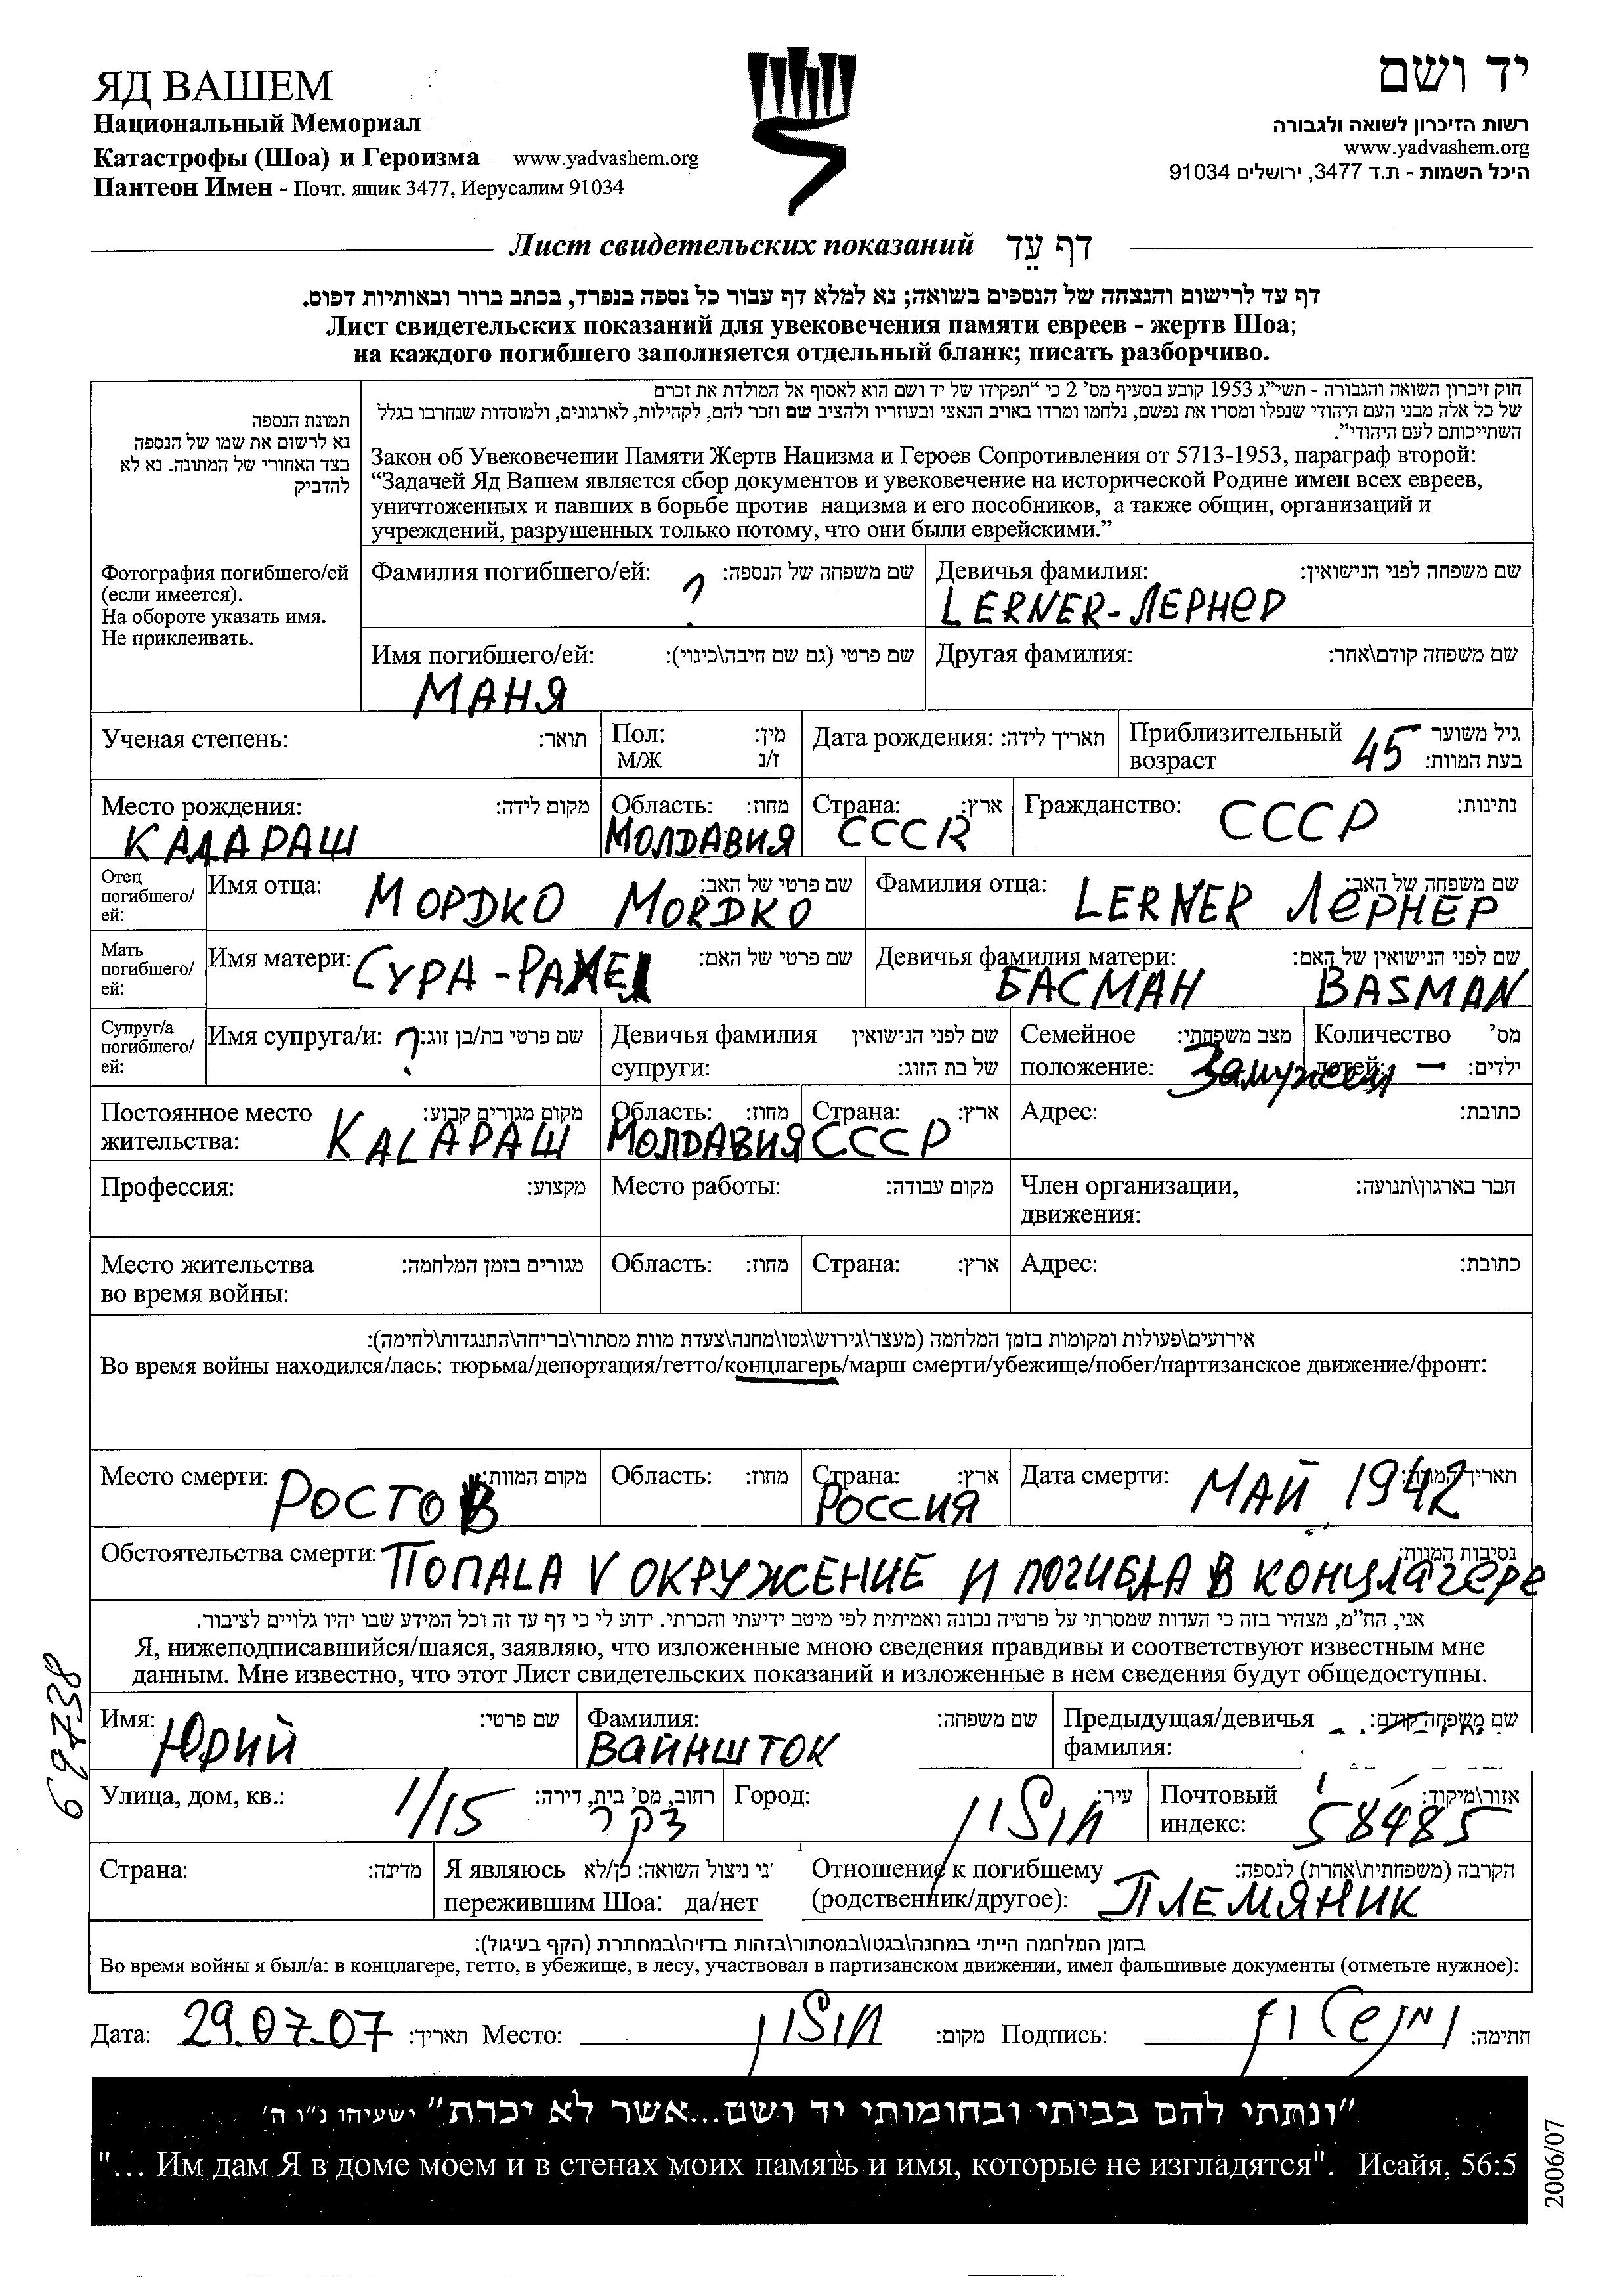 ЯД ВАШЕМ
Национальный Мемориал
Катастрофы (Шоа) и Героизма www.yadvashem.org
Пантеон Имен - Почт. ящик 3477, Иерусалим 91034
יד ושם
רשות הזיכרון לשואה ולגבורה
www.yadvashem.org
היכל השמות - ת.ד 3477, ירושלים 91034
Лист свидетельских показаний דף עֵד
דף עד לרישום והנצחה של הנספים בשואה; נא למלא דף עבור כל נספה בנפרד, בכתב ברור ובאותיות דפוס.
Лист свидетельских показаний для увековечения памяти евреев - жертв Шоа;
на каждого погибшего заполняется отдельный бланк; писать разборчиво.
תמונת הנספה
נא לרשום את שמו של הנספה
בצד האחורי של המתונה. נא לא
להדביק
Фотография погибшего/ей
(если имеется).
На обороте указать имя.
Не приклеивать.
חוק זיכרון השואה והגבורה - תשי"ג 1953 קובע בסעיף מס' 2 כי "תפקידו של יד ושם הוא לאסוף אל המולדת את זכרם
של כל אלה מבני העם היהודי שנפלו ומסרו את נפשם, נלחמו ומרדו באויב הנאצי ובעוזריו ולהציב שם וזכר להם, לקהילות, לארגונים, ולמוסדות שנחרבו בגלל
השתייכותם לעם היהודי".
Закон об Увековечении Памяти Жертв Нацизма и Героев Сопротивления от 5713-1953, параграф второй:
"Задачей Яд Вашем является сбор документов и увековечение на исторической Родине имен всех евреев,
уничтоженных и павших в борьбе против нацизма и его пособников, а также общин, организаций и
учреждений, разрушенных только потому, что они были еврейскими."
Фамилия погибшего/ей: ? שם משפחה של הנספה:
Девичья фамилия: שם משפחה לפני הנישואין:
LERNER-ЛЕРНЕР
Имя погибшего/ей: שם פרטי (גם שם חיבה\כינוי):
МАНЯ
Другая фамилия: שם משפחה קודם\אחר:
Ученая степень: תואר:
Пол: מין:
М/Ж ז/נ
Дата рождения: תאריך לידה:
Приблизительный גיל משוער
возраст 45 בעת המוות:
Место рождения: מקום לידה:
КАЛАРАШ
Область: מחוז:
МОЛДАВИЯ
Страна: ארץ:
СССR
Гражданство: СССР נתינות:
Отец
погибшего/
ей:
Имя отца: МОРДКО MORDKO שם פרטי של האב:
Фамилия отца: LERNER ЛЕРНЕР שם משפחה של האב:
Мать
погибшего/
ей:
Имя матери: СУРА-РАХЕЛ שם פרטי של האם:
Девичья фамилия матери: שם לפני הנישואין של האם:
БАСМАН BASMAN
Супруг/а
погибшего/
ей:
Имя супруга/и: ? שם פרטי בת/בן זוג:
Девичья фамилия שם לפני הנישואין
супруги: של בת הזוג:
Семейное מצב משפחתי:
положение: Замужем
Количество מס'
детей: – ילדים:
Постоянное место מקום מגורים קבוע:
жительства: КАLАРАШ
Область: מחוז:
МОЛДАВИЯ
Страна: ארץ:
СССР
Адрес: כתובת:
Профессия: מקצוע:
Место работы: מקום עבודה:
Член организации, חבר בארגון\תנועה:
движения:
Место жительства מגורים בזמן המלחמה:
во время войны:
Область: מחוז:
Страна: ארץ:
Адрес: כתובת:
אירועים\פעולות ומקומות בזמן המלחמה (מעצר\גירוש\גטו\מחנה\צעדת מוות מסתור\בריחה\התנגדות\לחימה):
Во время войны находился/лась: тюрьма/депортация/гетто/концлагерь/марш смерти/убежище/побег/партизанское движение/фронт:
Место смерти: РОСТОВ מקום המוות:
Область: מחוז:
Страна: ארץ:
РОССИЯ
Дата смерти: МАЙ 1942 תאריך המוות:
Обстоятельства смерти: ПОПАLА V ОКРУЖЕНИЕ И ПОГИБLА В КОНЦЛАГЕРЕ נסיבות המוות:
אני, הח"מ, מצהיר בזה כי העדות שמסרתי על פרטיה נכונה ואמיתית לפי מיטב ידיעתי והכרתי. ידוע לי כי דף עד זה וכל המידע שבו יהיו גלויים לציבור.
Я, нижеподписавшийся/шаяся, заявляю, что изложенные мною сведения правдивы и соответствуют известным мне
данным. Мне известно, что этот Лист свидетельских показаний и изложенные в нем сведения будут общедоступны.
69738
Имя: ЮРИЙ שם פרטי:
Фамилия: שם משפחה:
ВАЙНШТОК
Предыдущая/девичья שם משפחה קודם:
фамилия:
Улица, дом, кв.: 1/15 רחוב, מס' בית, דירה:
דקר
Город: חולון עיר:
Почтовый אזור\מיקוד:
индекс: 58485
Страна: מדינה:
Я являюсь ני ניצול השואה: כן/לא
пережившим Шоа: да/нет
Отношение к погибшему הקרבה (משפחתית\אחרת) לנספה:
(родственник/другое): ПЛЕМЯНИК
בזמן המלחמה הייתי במחנה\בגטו\במסתור\בזהות בדויה\במחתרת (הקף בעיגול):
Во время войны я был/а: в концлагере, гетто, в убежище, в лесу, участвовал в партизанском движении, имел фальшивые документы (отметьте нужное):
Дата: 29.07.07 תאריך: Место: חולון מקום: Подпись: חתימה:
"ונתתי להם בביתי ובחומותי יד ושם...אשר לא יכרת" ישעיהו נ"ו ה'
"... Им дам Я в доме моем и в стенах моих память и имя, которые не изгладятся". Исайя, 56:5
2006/07